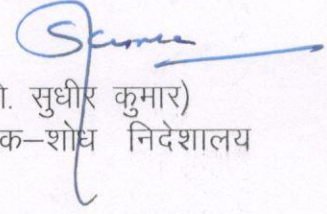 . सुधीर कुमार)
क–शोध निदेशालय